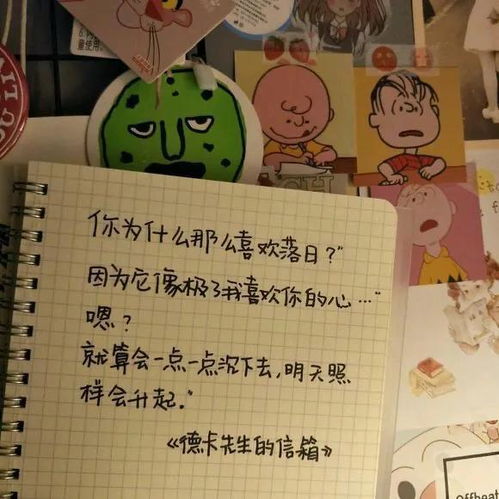 你为什么那么喜欢落日？"
因为它像极了我喜欢你的心…"
嗯？
就算会一点一点沉下去，明天照
样会升起。"
《德卡先生的信箱》
offbeat